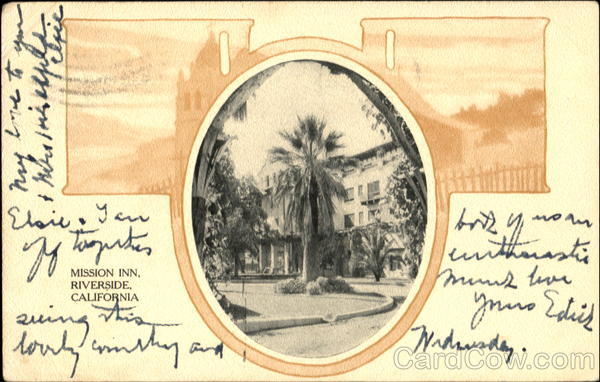 My love to you
& Mrs
Elsie
Elsie & I are
off together
MISSION INN,
RIVERSIDE,
CALIFORNIA
seeing this
lovely country and
both of us are
enthusiastic
Much love
Yours Edith
Wednesday.
CardCow.com